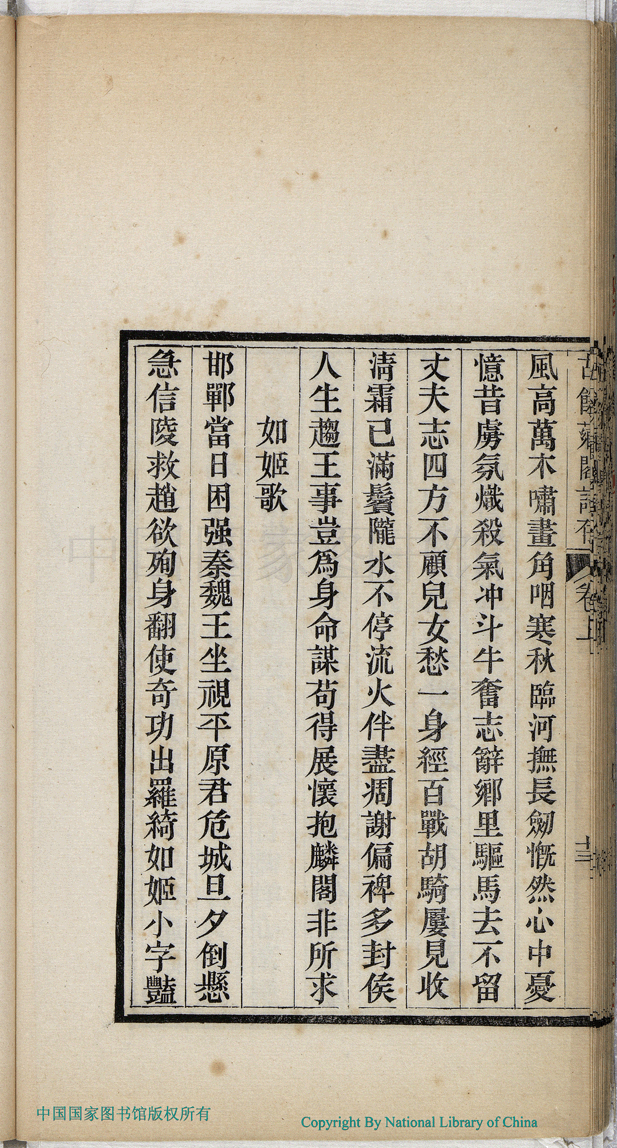 風高萬木嘯畫角咽寒秋臨河撫長劒慨然心中憂
憶昔虜氛熾殺氣冲斗牛奮志辭鄉里驅馬去不留
丈夫志四方不顧兒女愁一身經百戰胡騎屢見收
淸霜已滿鬢隴水不停流火伴盡凋謝偏裨多封侯
人生趨王事豈爲身命謀苟得展懷抱麟閣非所求
如姬歌
邯鄲當日困强秦魏王坐視平原君危城旦夕倒懸
急信陵救趙欲殉身翻使奇功出羅綺如姬小字豔
卷上
中国国家图书馆版权所有
Copyright By National Library of China